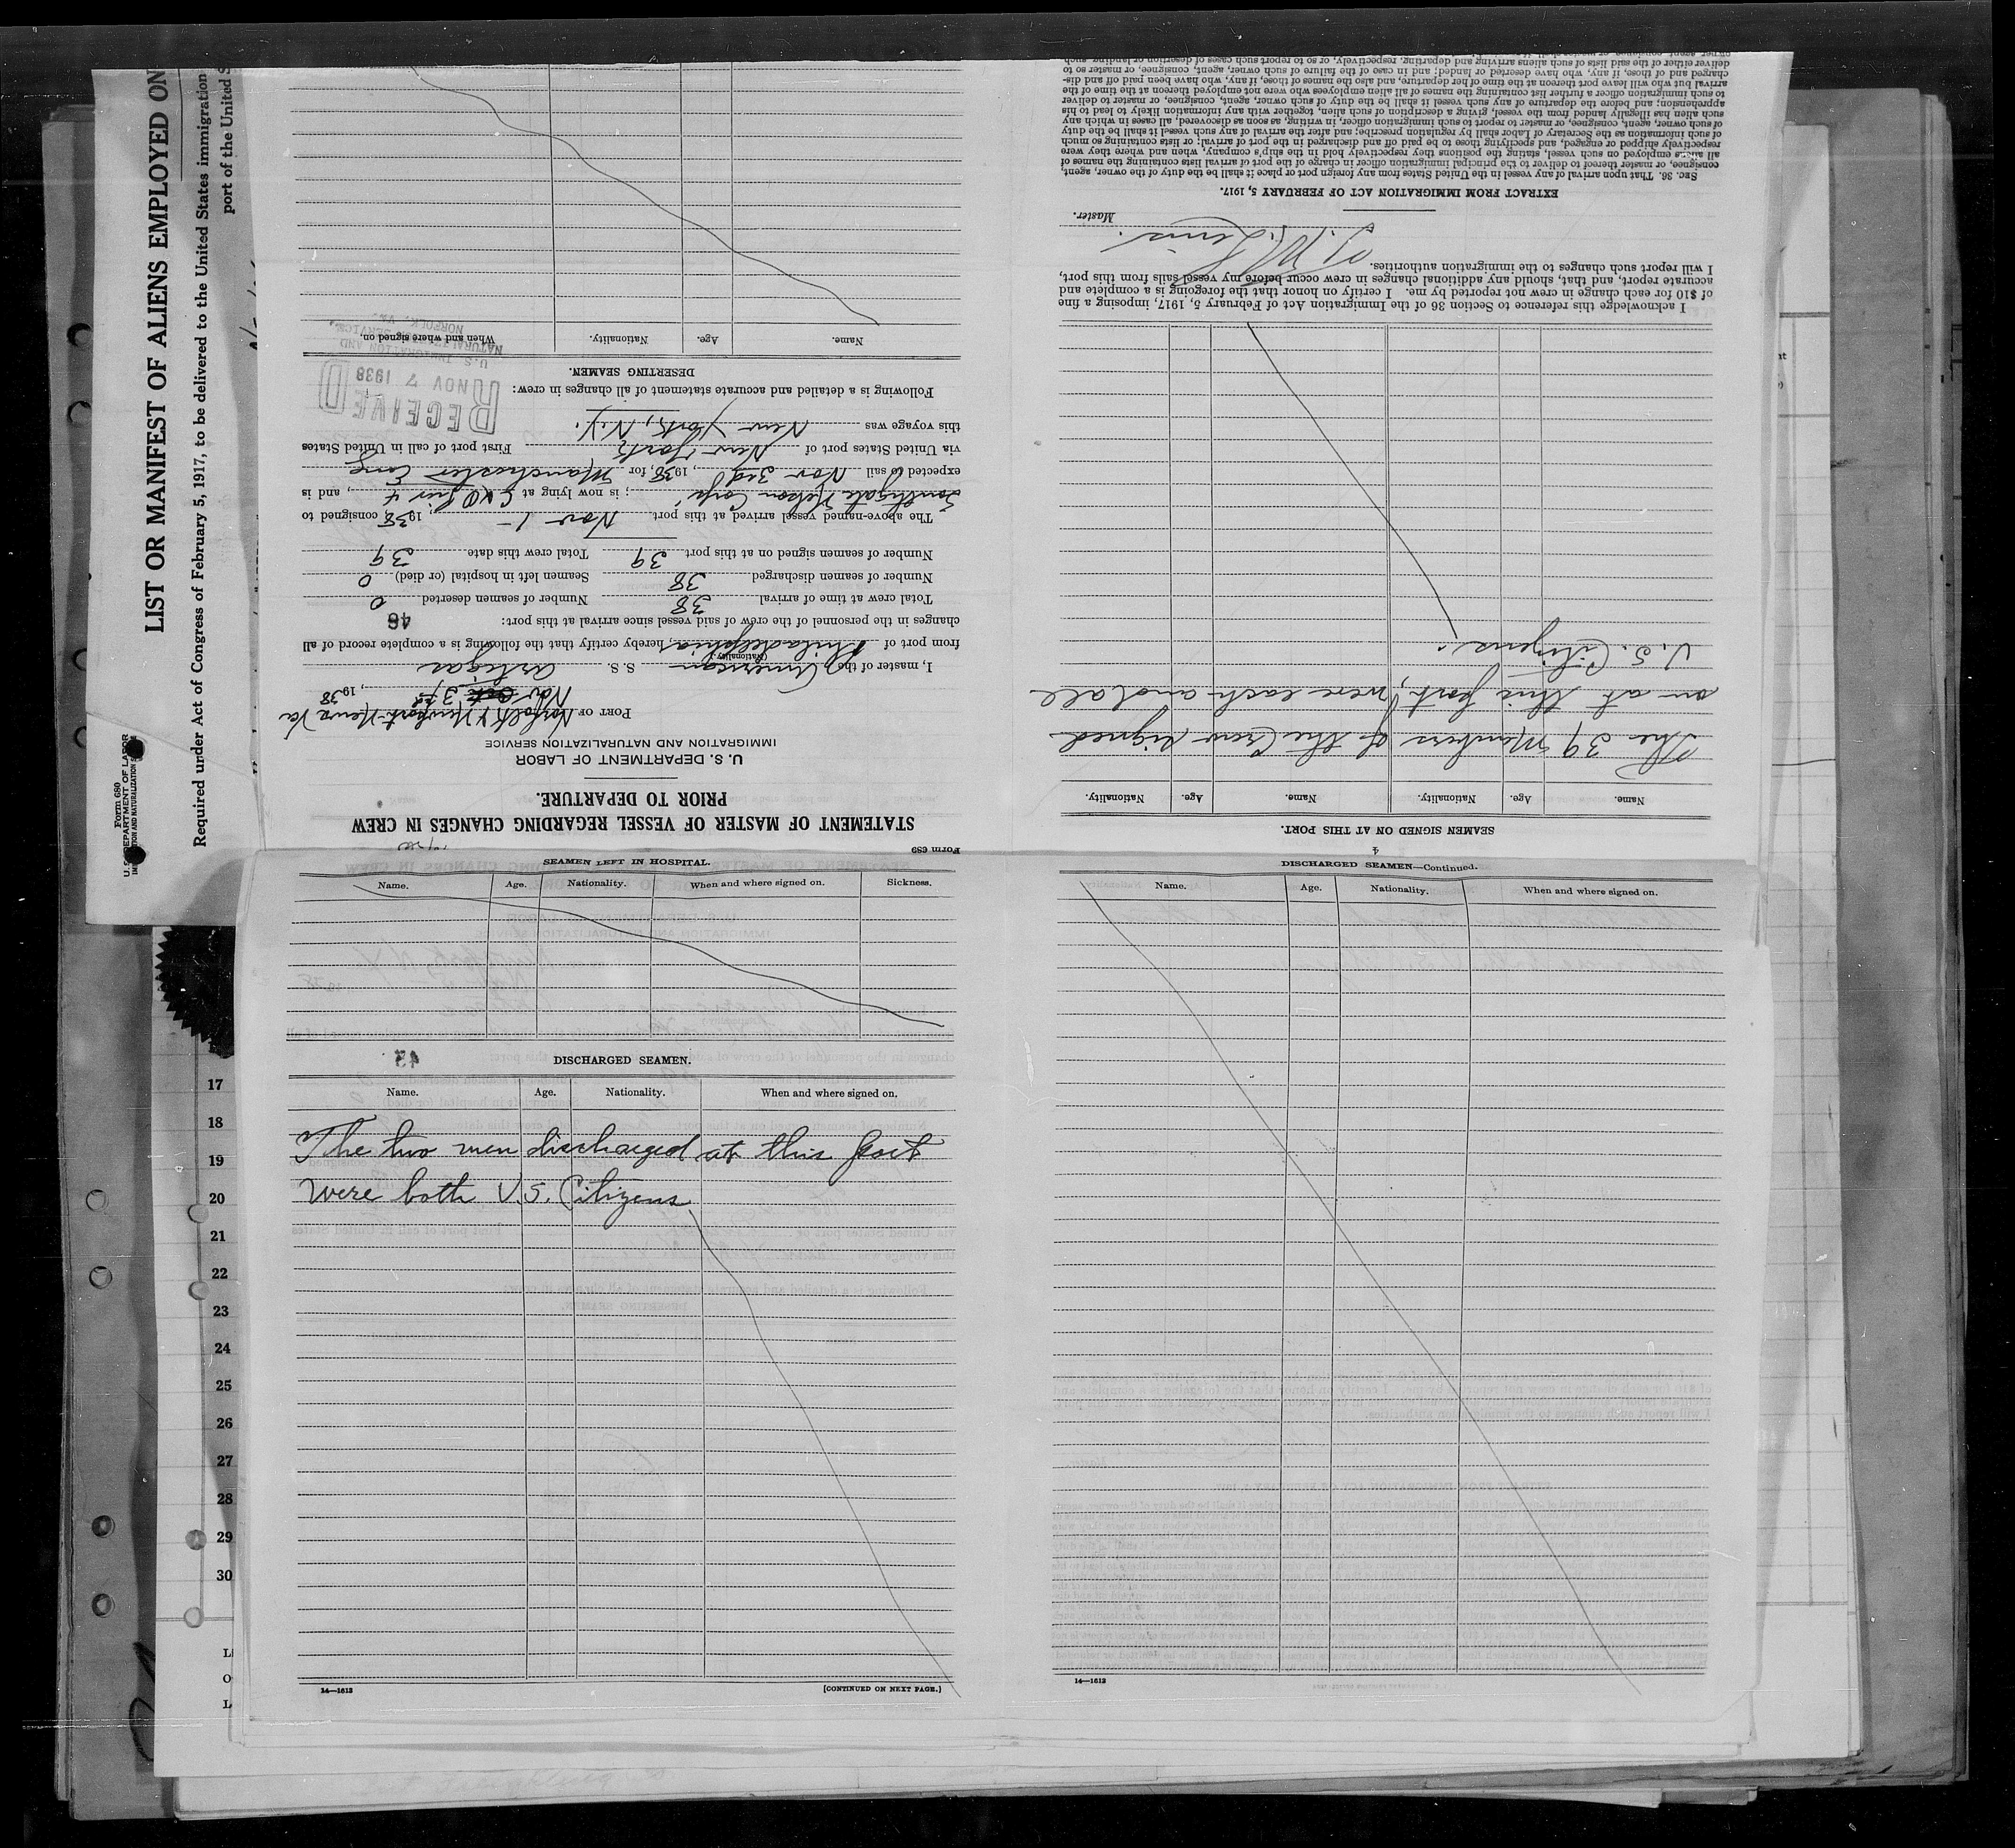 LIST OR MANIFEST OF ALIENS EMPLOYED ON
Required under Act of Congress of February 5, 1917, to be delivered to the United States immigration
port of the United S
Form 680
U. S. DEPARTMENT OF LABOR
IMMIGRATION AND NATURALIZATION SERVICE
Form 689
STATEMENT OF MASTER OF VESSEL REGARDING CHANGES IN CREW
PRIOR TO DEPARTURE.
U. S. DEPARTMENT OF LABOR
IMMIGRATION AND NATURALIZATION SERVICE
PORT OF Norfolk & Newport News Va
Nov 3rd, 1938
I, master of the American S. S. Artigas
(Nationality)
from port of Philadelphia, hereby certify that the following is a complete record of all
changes in the personnel of the crew of said vessel since arrival at this port:
46
Total crew at time of arrival 38 Number of seamen deserted 0
Number of seamen discharged 38 Seamen left in hospital (or died) 0
Number of seamen signed on at this port 39 Total crew this date 39
The above-named vessel arrived at this port Nov 1 -, 1938, consigned to
Southgate Nelson Corp; is now lying at C&O Pier 4, and is
expected to sail Nov 3rd, 1938, for Manchester Eng
via United States port of New York First port of call in United States
this voyage was New York, N.Y.
RECEIVED
NOV 7 1938
U.S. IMMIGRATION AND
NATURALIZATION SERVICE,
NORFOLK, VA.
Following is a detailed and accurate statement of all changes in crew:
DESERTING SEAMEN.
Name. Age. Nationality. When and where signed on
4
SEAMEN SIGNED ON AT THIS PORT.
Name. Age. Nationality. Name. Age. Nationality.
The 39 Members of the Crew signed
on at this port, were each and all
U.S. Citizens.
I acknowledge this reference to Section 36 of the Immigration Act of February 5, 1917, imposing a fine
of $10 for each change in crew not reported by me. I certify on honor that the foregoing is a complete and
accurate report, and that, should any additional changes in crew occur before my vessel sails from this port,
I will report such changes to the immigration authorities.
Master.
EXTRACT FROM IMMIGRATION ACT OF FEBRUARY 5, 1917.
SEC. 36. That upon arrival of any vessel in the United States from any foreign port or place it shall be the duty of the owner, agent,
consignee, or master thereof to deliver to the principal immigration officer in charge of the port of arrival lists containing the names of
all aliens employed on such vessel, stating the positions they respectively hold in the ship's company, when and where they were
respectively shipped or engaged, and specifying those to be paid off and discharged in the port of arrival; or lists containing so much
of such information as the Secretary of Labor shall by regulation prescribe; and after the arrival of any such vessel it shall be the duty
of such owner, agent, consignee, or master to report to such immigration officer, in writing, as soon as discovered, all cases in which any
such alien has illegally landed from the vessel, giving a description of such alien, together with any information likely to lead to his
apprehension; and before the departure of any such vessel it shall be the duty of such owner, agent, consignee, or master to deliver
to such immigration officer a further list containing the names of all alien employees who were not employed thereon at the time of the
arrival but who will leave port thereon at the time of her departure, and also the names of those, if any, who have been paid off and dis-
charged and of those, if any, who have deserted or landed; and in case of the failure of such owner, agent, consignee, or master so to
deliver either of the said lists of such aliens arriving and departing, respectively, or so to report such cases of desertion or landing, such
SEAMEN LEFT IN HOSPITAL.
Name. Age. Nationality. When and where signed on. Sickness.
DISCHARGED SEAMEN.
Name. Age. Nationality. When and where signed on.
The two men discharged at this port
were both U.S. Citizens
14—1613
[CONTINUED ON NEXT PAGE.]
DISCHARGED SEAMEN—Continued.
Name. Age. Nationality. When and where signed on.
14—1613
17
18
19
20
21
22
23
24
25
26
27
28
29
30